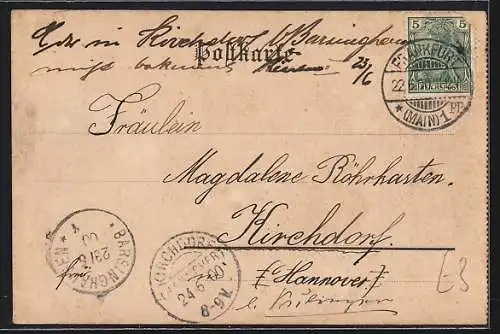 in Kirchdorf b/Barsinghausen
nicht bekannt 23/6
Postkarte
5 5
FRANKFURT
22.
* (MAIN) 1 PP
Fräulein
Magdalene Röhrkasten.
Kirchdorf.
(Hannover)
BARSINGHAUSEN
23/6
00
KIRCHDORF
(HANNOVER)
24 6 00
8-9V.
E3